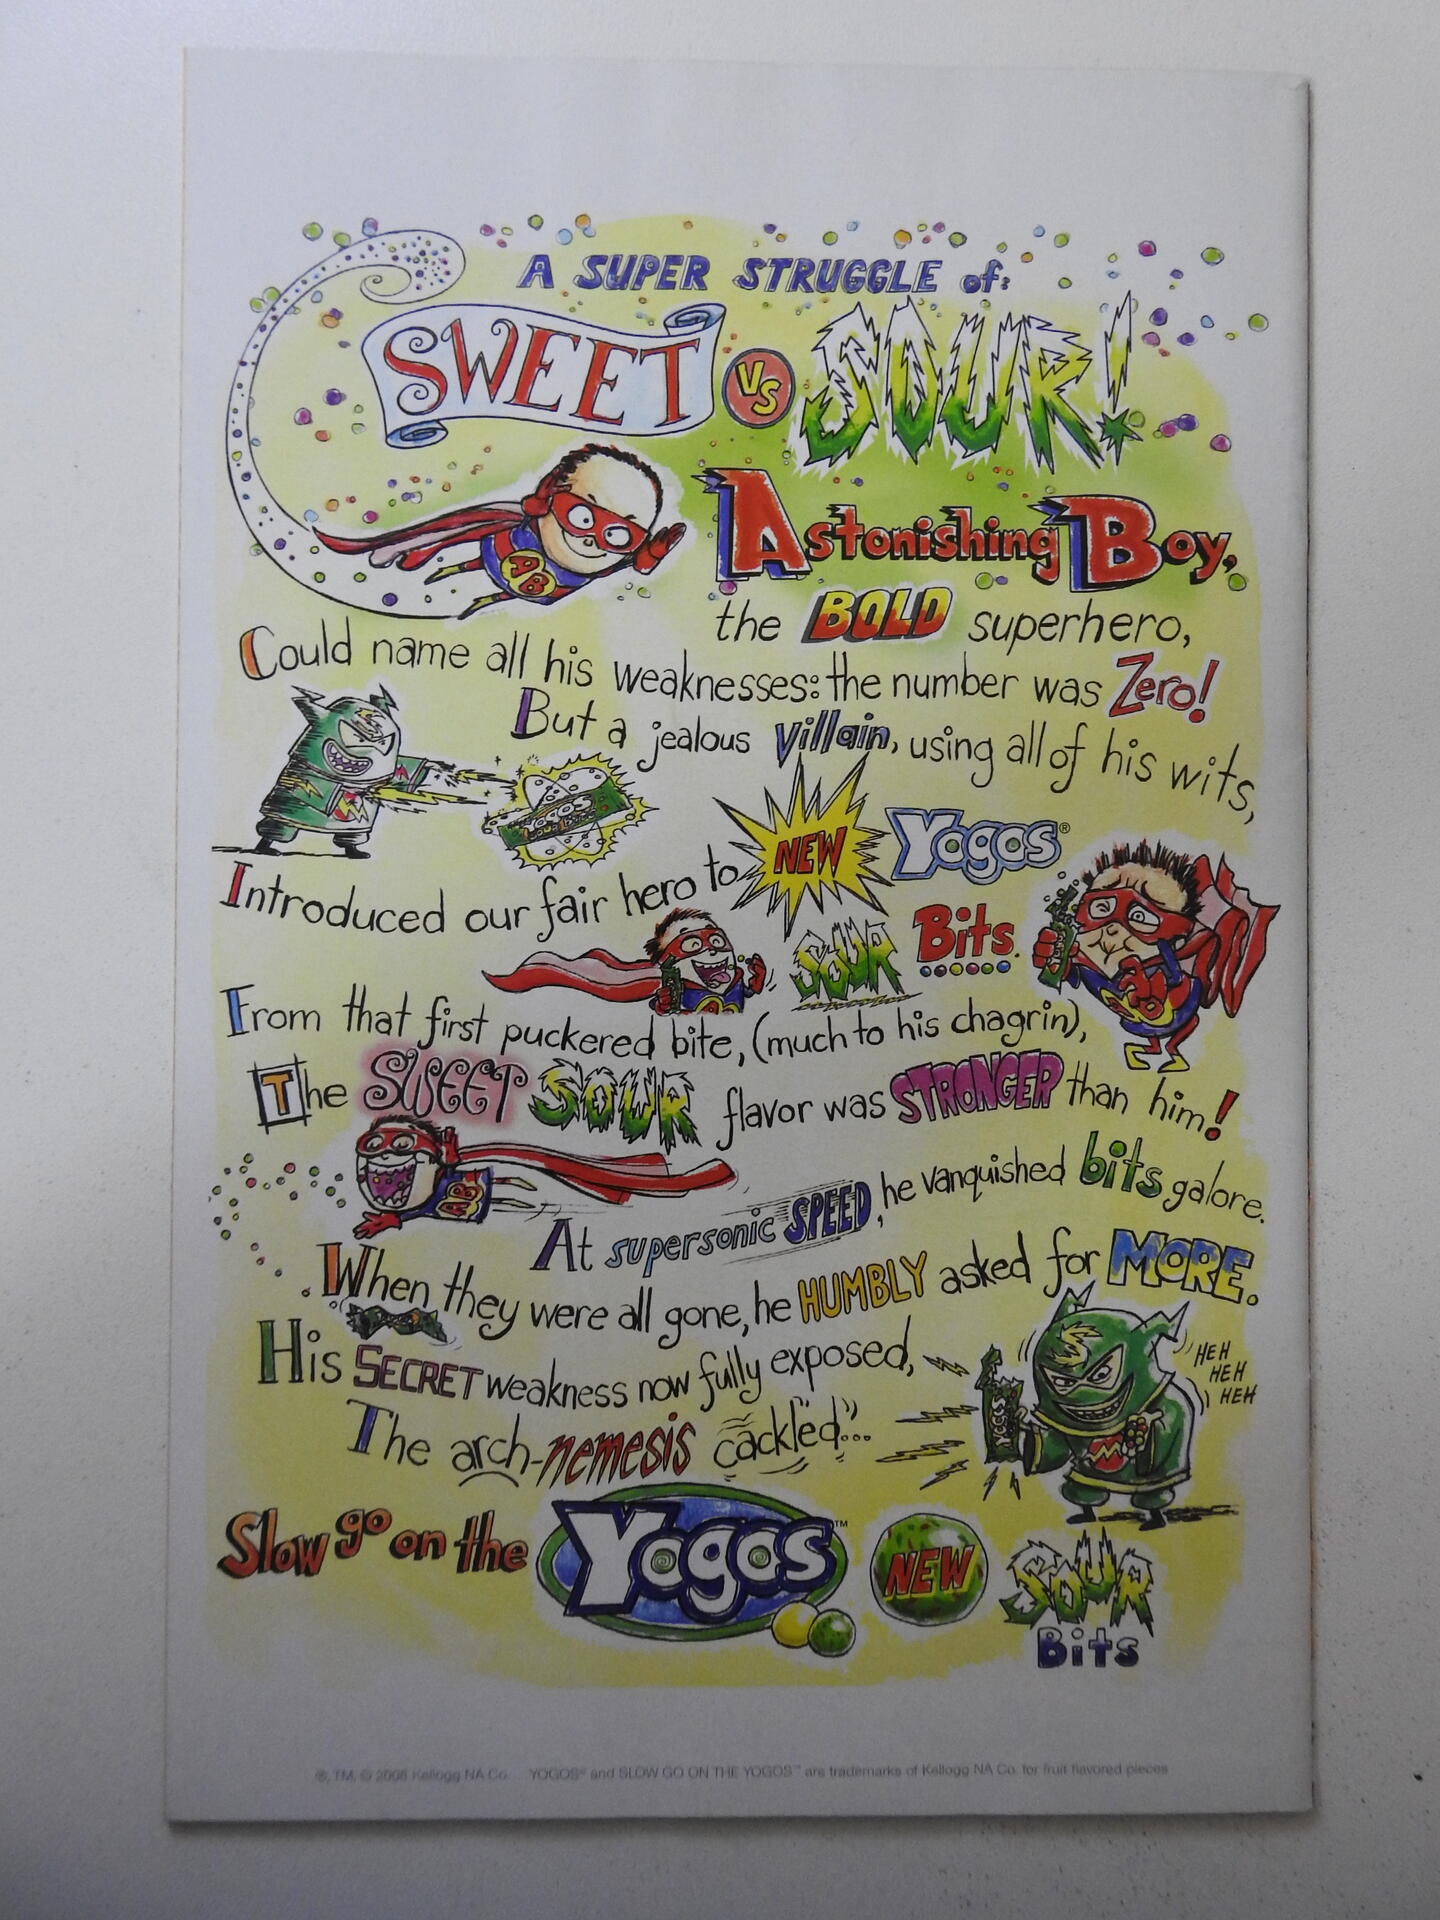 A SUPER STRUGGLE of:
SWEET VS SOUR!
Astonishing Boy,
AB
the BOLD superhero,
Could name all his weaknesses: the number was Zero!
But a jealous Villain, using all of his wits,
Introduced our fair hero to NEW Yogos®
SOUR Bits.
From that first puckered bite, (much to his chagrin),
The SWEET SOUR flavor was STRONGER than him!
AB
At supersonic SPEED, he vanquished bits galore.
When they were all gone, he HUMBLY asked for MORE.
His SECRET weakness now fully exposed,
HEH
HEH
HEH
The arch-nemesis cackled...
YOGOS
Slow go on the Yogos™ NEW SOUR
Bits
®, TM, © 2006 Kellogg NA Co. YOGOS® and SLOW GO ON THE YOGOS™ are trademarks of Kellogg NA Co. for fruit flavored pieces